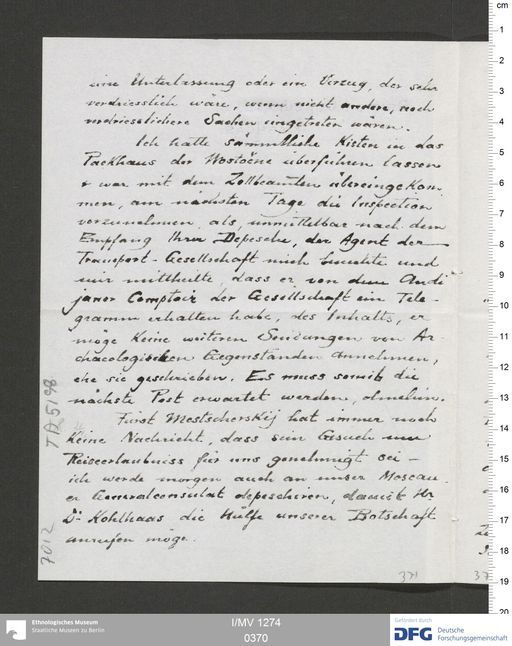 eine Unterlassung oder ein Verzug, der sehr
verdriesslich wäre, wenn nicht andere, noch
verdriesslichere Sachen eingetreten wären.
Ich hatte sämmtliche Kisten in das
Packhaus der Wostočne überführen lassen
& war mit dem Zollbeamten übereingekom-
men, am nächsten Tage die Inspection
vorzunehmen, als, unmittelbar nach dem
Empfang Ihrer Depesche, der Agent der
Transport-Gesellschaft mich besuchte und
mir mittheilte, dass er von dem Andi
janer Comptoir der Gesellschaft ein Tele-
gramm erhalten habe, des Inhalts, er
möge keine weiteren Sendungen von Ar-
chaeologischen Gegenständen annehmen,
ehe sie geschrieben. Es muss somit die
nächste Post erwartet werden,
Fürst Mestscherskij hat immer noch
keine Nachricht, dass sein Gesuch um
Reiseerlaubniss für uns genehmigt sei –
ich werde morgen auch an unser Moscau-
er Generalconsulat depeschiren, damit Hr
Dr Kohlhaas die Hülfe unserer Botschaft
anrufen möge.
TA 5198
7012
371
37
cm
1
2
3
4
5
6
7
8
9
10
11
12
13
14
15
16
17
18
19
20
Ethnologisches Museum
Staatliche Museen zu Berlin
I/MV 1274
0370
Gefördert durch
DFG
Deutsche
Forschungsgemeinschaft